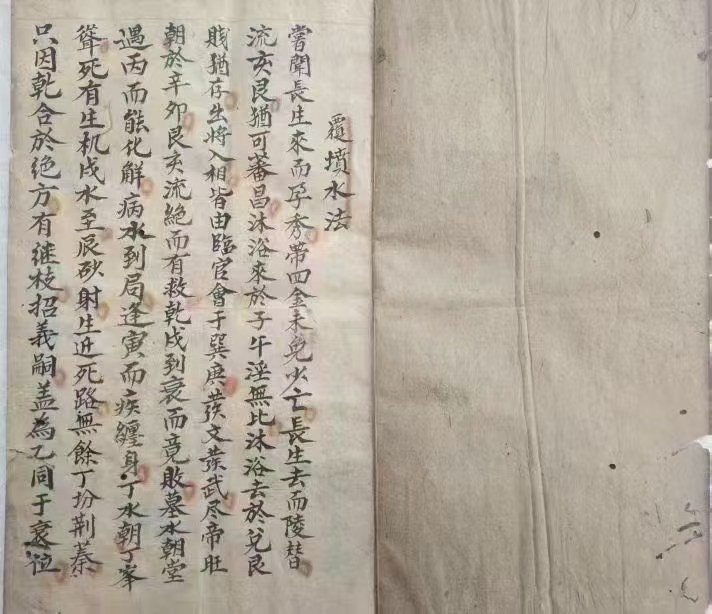 覆墳水法
嘗聞長生來而孕秀帶四金未免少亡長生去而陵替
流亥艮猶可蕃昌沐浴來於子午淫無比沐浴去於兌艮
賎猶存出將入相皆由臨官會于巽庚發文發武尽帝旺
朝於辛卯艮亥流絶而有救乾戌到衰而竟敗墓水朝堂
遇丙而能化解病水到局逢寅而疾纏身丁水朝丁峯
聳死有生机戌水至辰砂射生近死路無餘丁扮荆蓁
只因乾合於绝方有继枝招義嗣盖為乙同于衰位